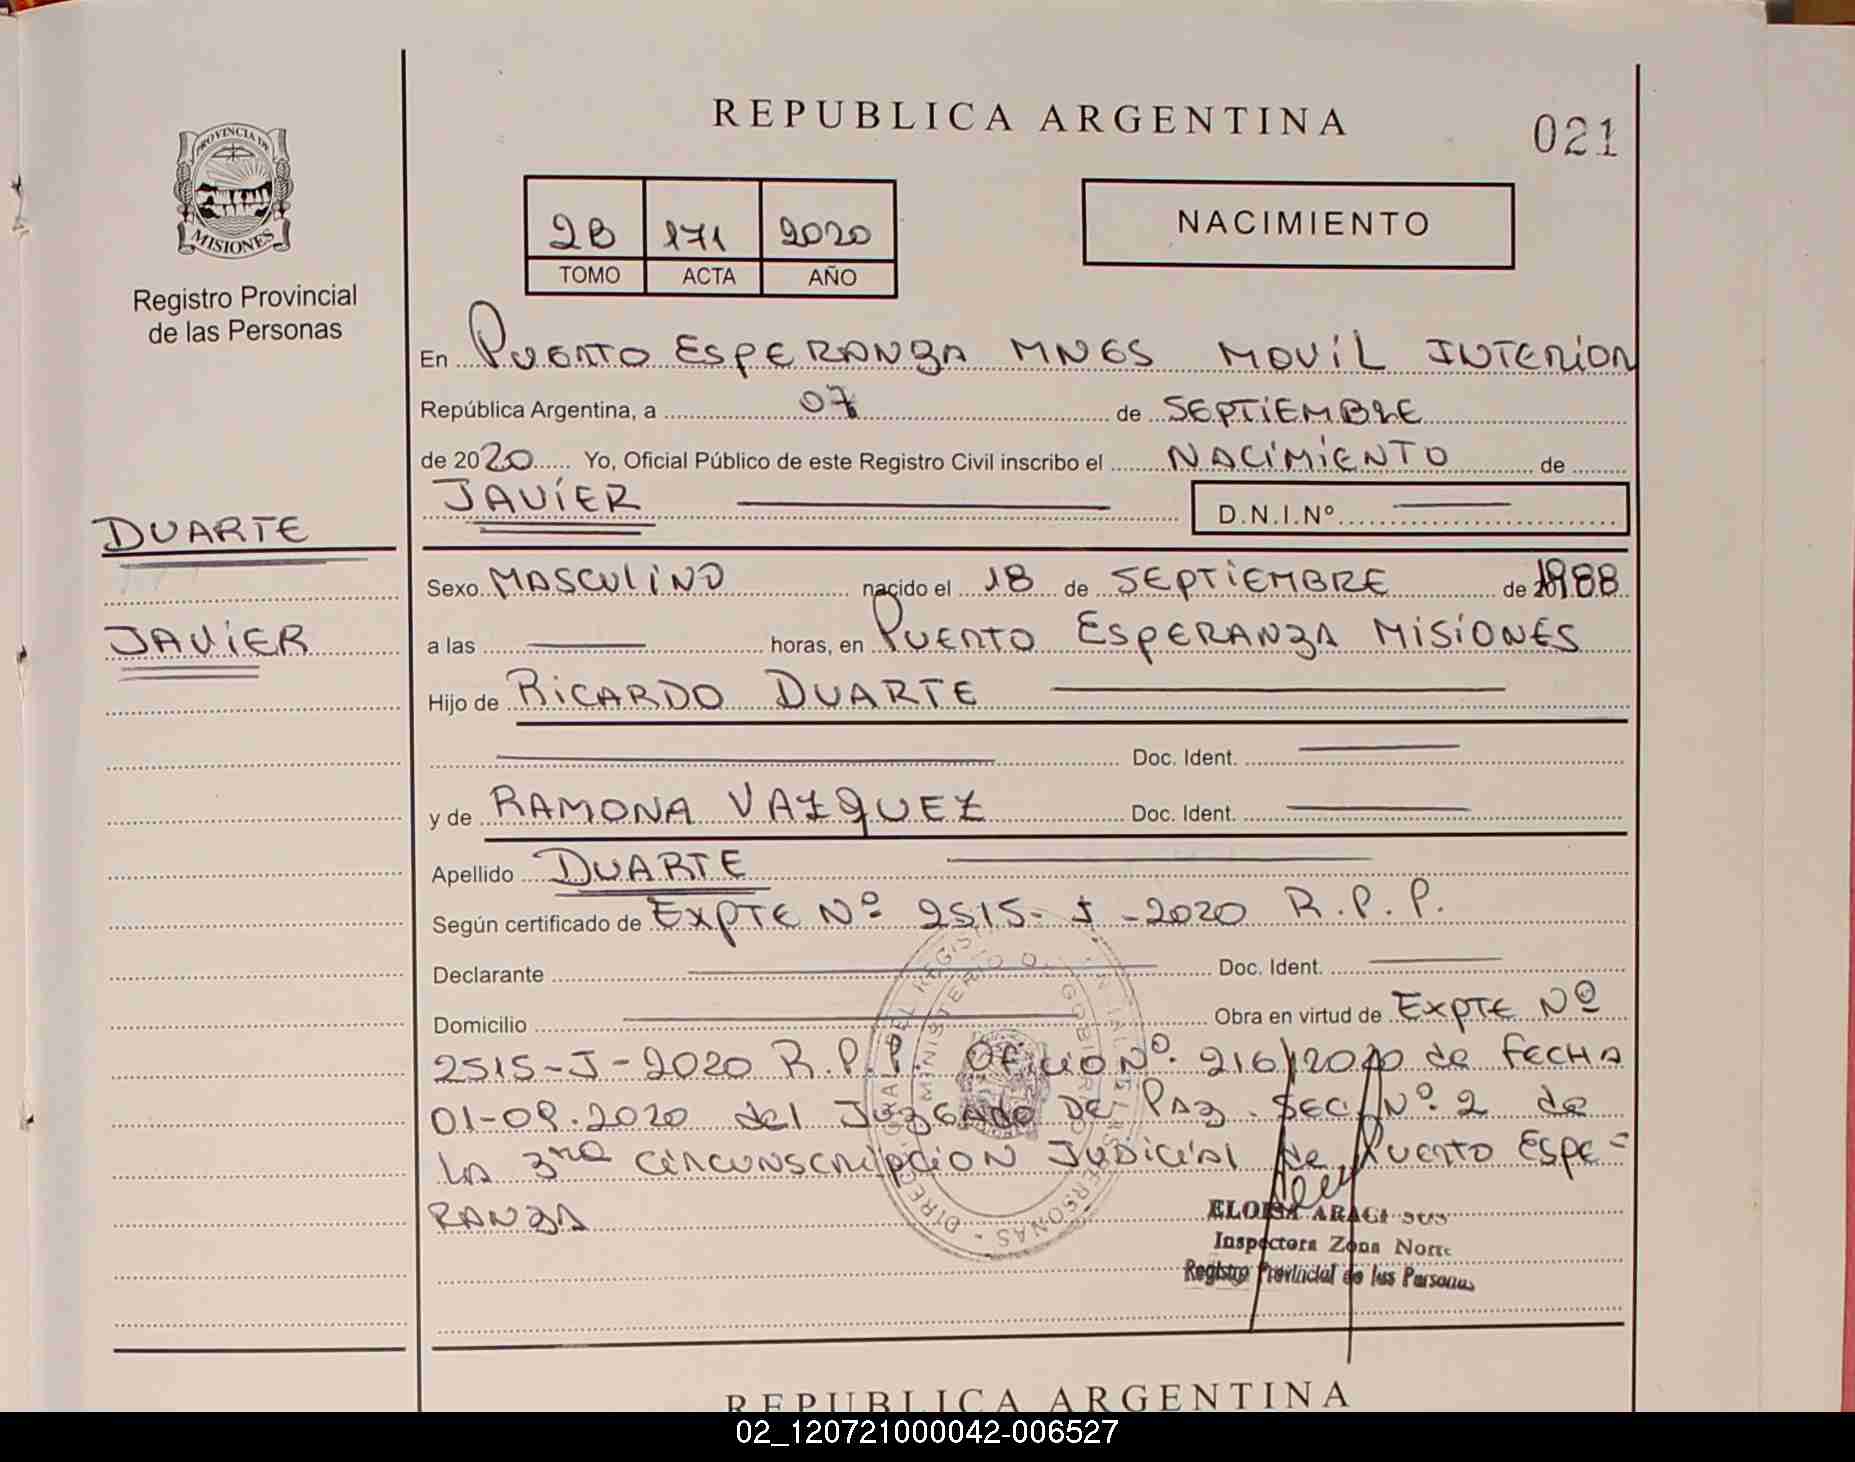 REPUBLICA ARGENTINA
021
PROVINCIA DE
MISIONES
Registro Provincial
de las Personas
2B 171 2020
TOMO ACTA AÑO
NACIMIENTO
En PUERTO ESPERANZA MNES MOVIL INTERIOR
República Argentina, a 07 de SEPTIEMBRE
de 2020 Yo, Oficial Público de este Registro Civil inscribo el NACIMIENTO de
JAVIER D.N.I.Nº
DUARTE
JAVIER
Sexo MASCULINO nacido el 18 de SEPTIEMBRE de 1988
a las horas, en PUERTO ESPERANZA MISIONES
Hijo de RICARDO DUARTE
Doc. Ident.
y de RAMONA VAZQUEZ Doc. Ident.
Apellido DUARTE
Según certificado de EXPTE Nº 2515-J-2020 R.P.P.
Declarante Doc. Ident.
Domicilio Obra en virtud de EXPTE Nº
2515-J-2020 R.P.P. OFICIO Nº 216/2020 de FECHA
01-09.2020 del JUZGADO DE PAZ SEC. Nº 2 de
LA 3ra CIRCUNSCRIPCION JUDICIAL de PUERTO ESPE=
RANZA
ELOISA
Inspectora Zona Norte
Registro Provincial de las Personas
REPUBLICA ARGENTINA
02_120721000042-006527